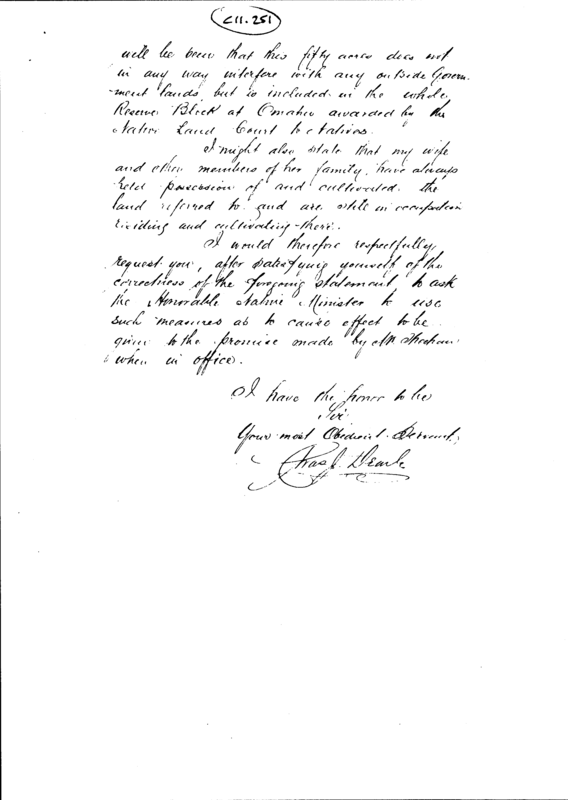 C11.251
will be seen that this fifty acres does not
in any way interfere with any outside Govern-
ment lands but is included in the whole
Reserve Block at Omahu awarded by the
Native Land Court to Natives.
I might also state that my wife
and other members of her family, have always
held possession of and cultivated the
land referred to and are still in occupation
residing and cultivating there.
I would therefore respectfully
request you, after satisfying yourself of the
correctness of the foregoing statement, to ask
the Honorable Native Minister to use
such measures as to cause effect to be
given to the promise made by Mr Sheehan
when in office.
I have the honor to be
Sir
Your most Obedient Servant,
Chas